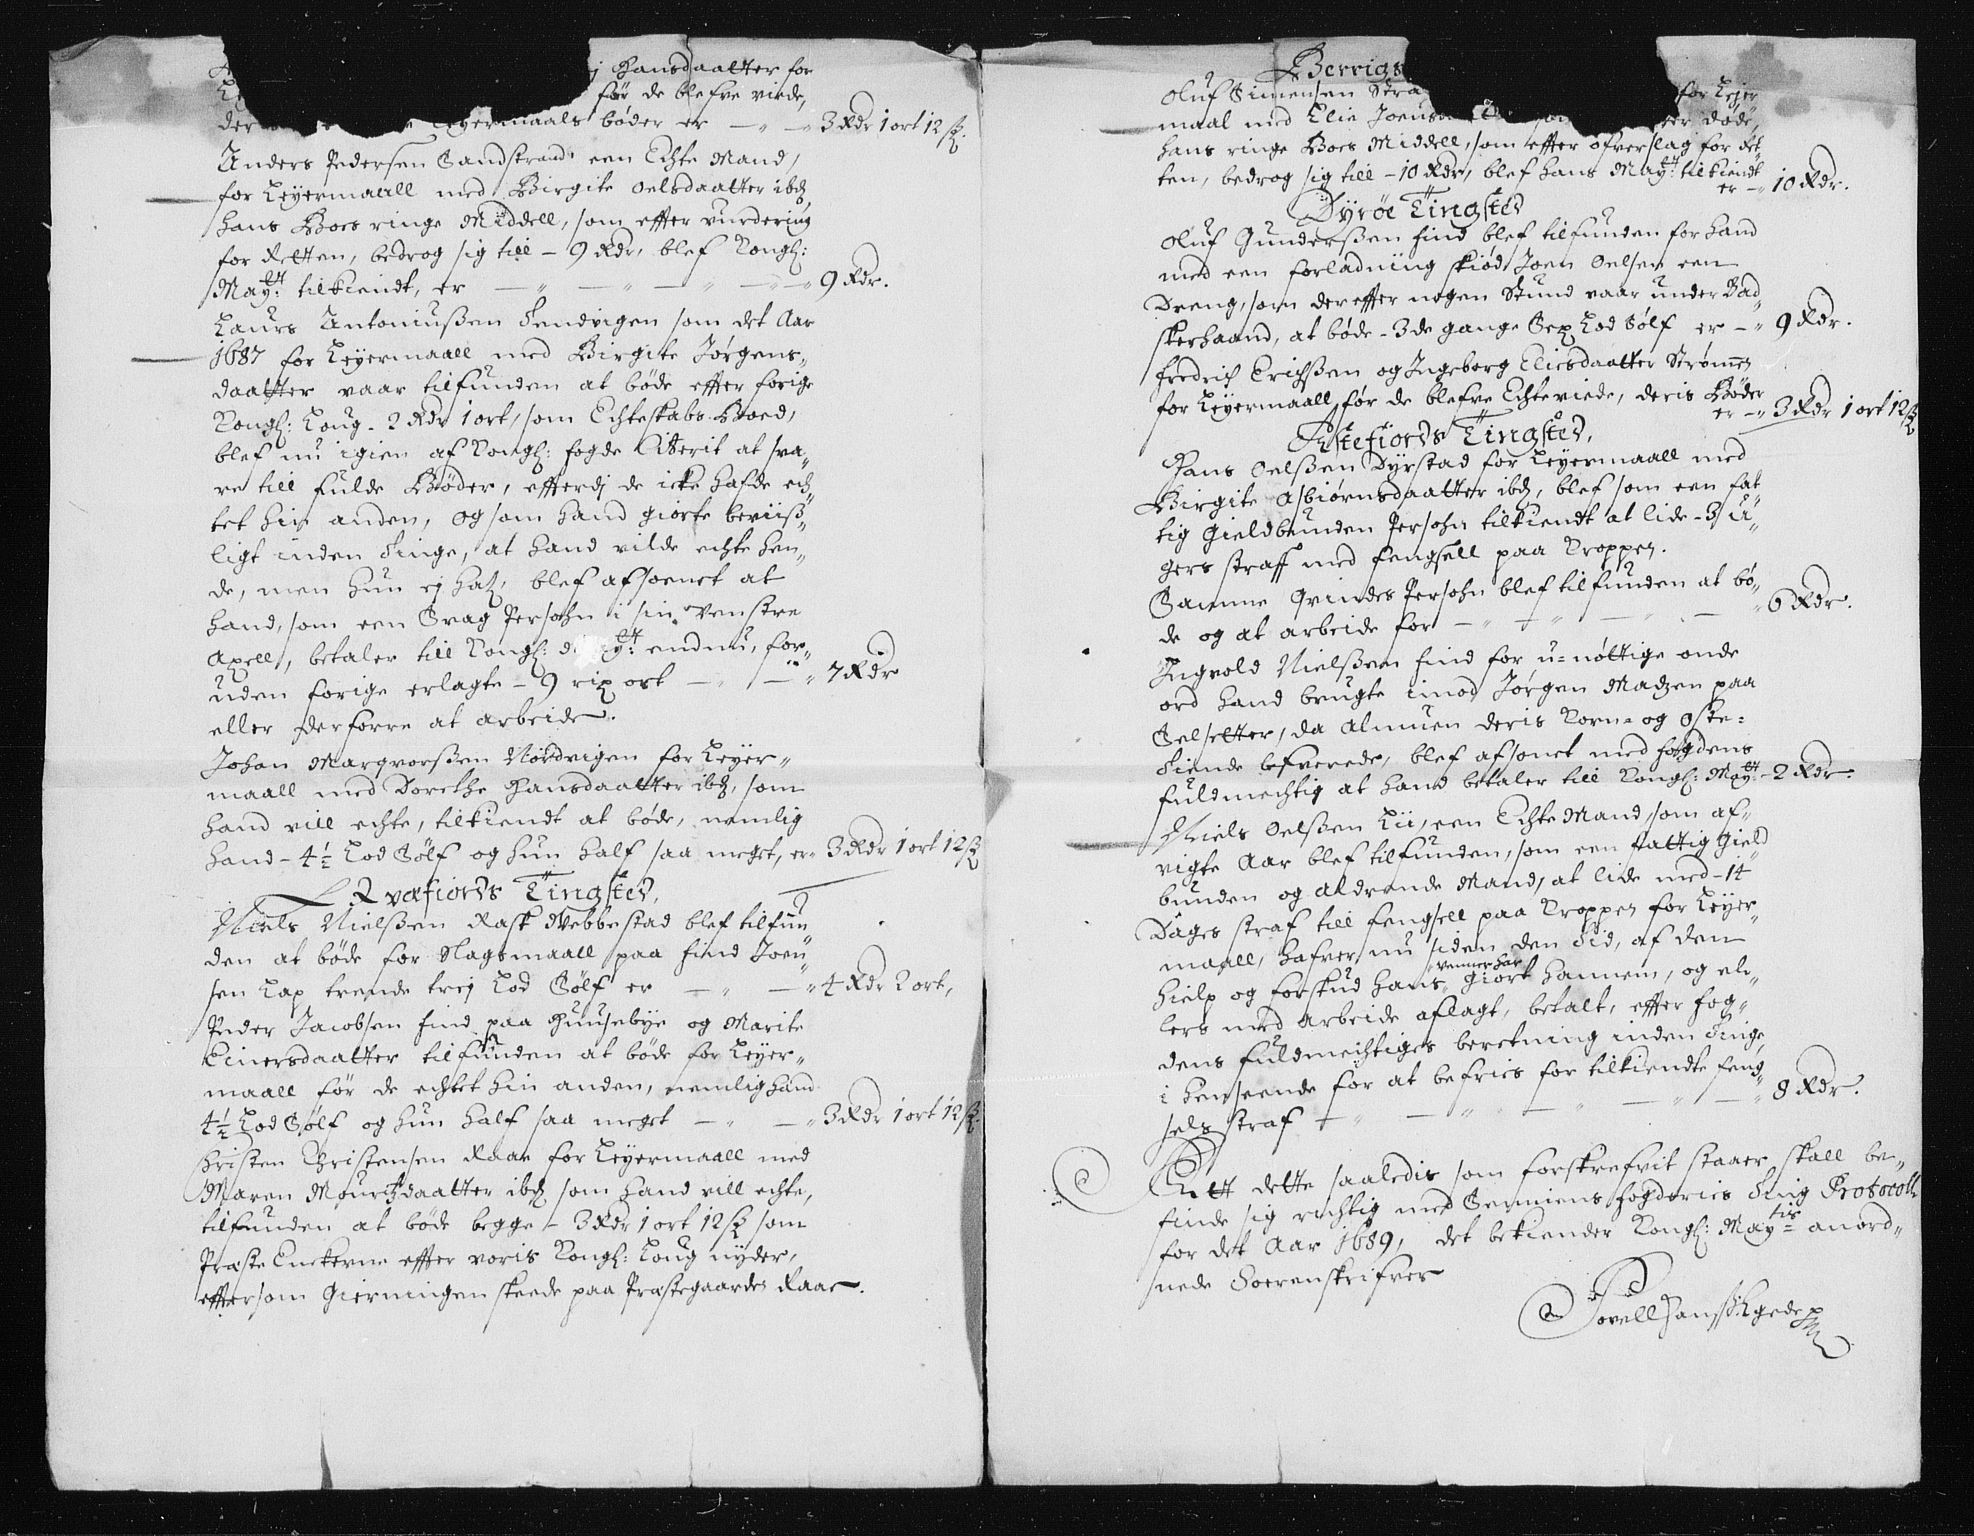 Hansdaatter for
før de blefve viede,
der Leyermaals bøder er — 3 Rdr 1 ort 12 ß
Anders Pedersen Sandstrand een Echte Mand,
for Leyermaall med Birgite Oelsdaatter ibd
hans Boes ringe Middell, som effter vurdering
for Retten, bedrog sig till – 9 Rdr, blef Kongl:
May:tt tilkiendt, er — 9 Rdr.
Laurs Antoniusßen Sendvigen som det Aar
1687 for Leyermaall med Birgite Jørgens-
daatter vaar tilfunden at bøde effter forige
Kongl: Loug – 2 Rdr 1 ort, som Echteskabs-Boed,
blef nu igien af Kongl: fogde Citerit at sva-
re till fulde Bøder, efferdj de icke hafde ech-
tet hin anden, og som hand giorte beviiß-
ligt inden Tinge, at hand vilde echte hen-
de, men hun ej hat, blef afsoenet at
hand, som een Svag Persohn i sin Venstre
Axell, betaler till Kongl: May:tt endnu, for-
uden forige erlagte – 9 rix ort — 7 Rdr
eller derforre at arbeide.
Johan Marqvorsßen Nordvigen for Leyer-
maall med Dorethe Hansdaatter ibd, som
hand vill echte, tilkiendt at bøde, nemlig
hand – 4½ Lod Sølf og hun half saa meget, er – 3 Rdr 1 ort 12 ß
Qvæfiords Tingsted,
Niels Nielsßen Rask Vebbestad blef tilfun
den at bøde for Slagsmaall paa find Joen-
sen Lap trende trej Lod Sølf er — 4 Rdr 2 ort,
Peder Jacobsen find paa Huusebye og Marite
Einersdaatter tilfunden at bøde for Leyer-
maall før de echtet hin anden, nemlig hand
4½ Lod Sølf og hun half saa meget — 3 Rdr 1 ort 12 ß.
Christen Christensen Raae for Leyermaall med
Maren Mouritzdaatter ibd som hand vill echte,
tilfunden at bøde begge – 3 Rdr 1 ort 12 ß som
Præste Enckerne effter voris Kongl: Loug nyder,
effersom Gierningen skeede paa Præstegaarden Raae.
Berrigs
Oluf Simensen Stra for Leyer
maal med Elie Joens døde,
hans ringe Boes Middell, som effter ofverslag for Ret-
ten, bedrog sig till – 10 Rdr, blef hans May:tt tilkiendt
er – 10 Rdr.
Dyrøe Tingsted
Oluf Gundersßen find blef tilfunden for hand
med een forladning skiød Joen Oelsen een
Dreng, som dereffter nogen Stund vaar under Bad-
skerhaand, at bøde – 3de gange Sex Lod Sølf er – 9 Rdr.
Fredrich Erichsßen og Ingeborg Eliesdaatter Strømmen
for Leyermaall, før de blefve Echte viede, deris Bøder
er – 3 Rdr 1 ort 12 ß
Astefiords Tingsted,
Hans Oelsßen Dyrstad for Leyermaall med
Birgite Asbiørnsdaatter ibd, blef som een fat
tig Gieldbunden Persohn tilkiendt at lide – 3 U-
gers straff med fengsell paa Kroppen.
Samme Qvindes Persohn blef tilfunden at bø-
de og at arbeide for — 6 Rdr.
Ingvold Nielsßen find for u-nøttige onde
ord hand brugte imod Jørgen Madzen paa
Selsetter, da Almuen deris Korn- og Oste-
Tiende lefverede, blef afsonet med fogdens
fuldmechtig at hand betaler till Kongl: May:tt – 2 Rdr.
Niels Oelsßen Lii, een Echte Mand, som af-
vigte Aar blef tilfunden, som een fattig Gield
bunden og aldrende Mand, at lide med – 14
Dages straf till fengsell paa Kroppen for Leyer-
maall, hafver nu siden den Tid, af den
hielp og forskud hans venner har giort hannem, og el-
lers med arbeide aflagt, betalt, effter fog-
dens fuldmechtiges beretning inden Tinge,
i henseende for at befries for tilkiendte feng-
sels straf — 8 Rdr.
Att dette saaledis som forskrefvit staaer, skall be-
finde sig richtig med Senniens fogderies Ting Protocoll
for det Aar 1689, det bekiender Kongl: May:tis anord-
nede Soerenskrifver
Povell Hanßß Egede